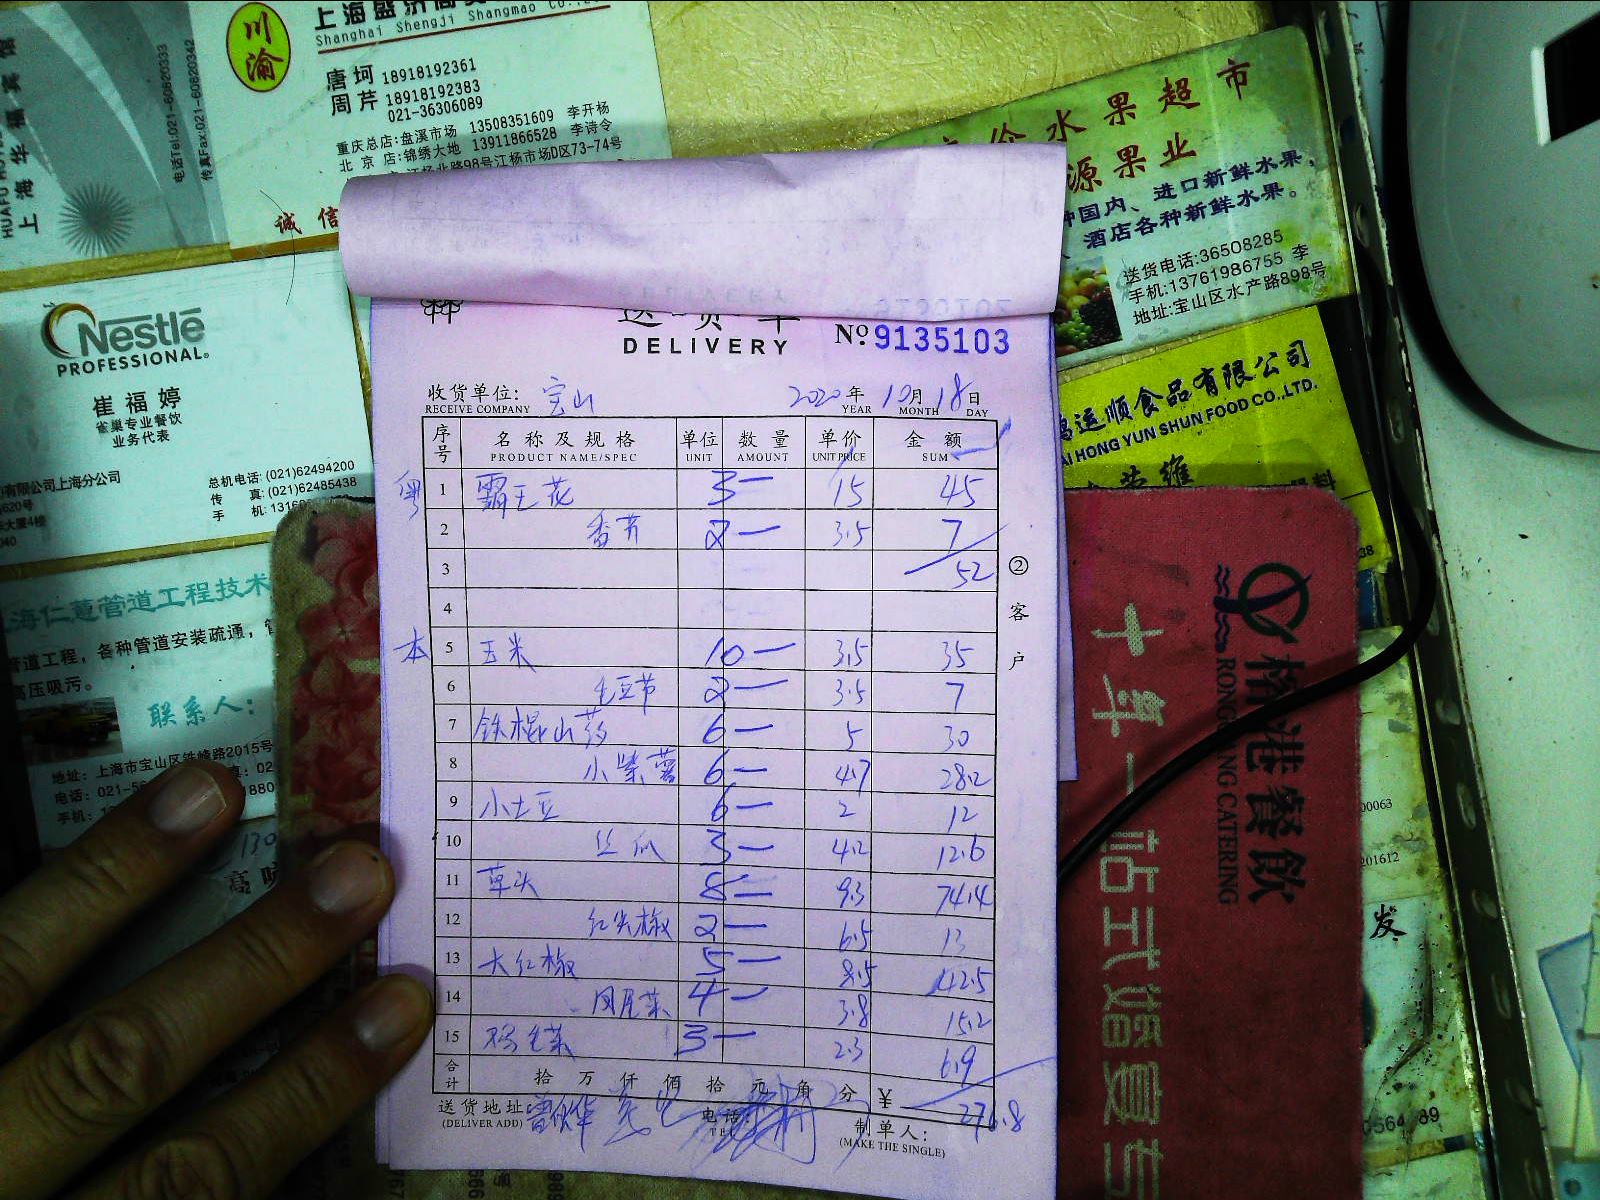 上海华福宾馆
电话Tel:021-60820333
传真Fax:021-60820342
川渝
Shanghai Shengji Shangmao Co.,
唐坷 18918192361
周芹 18918192383
021-36306089
重庆总店:盘溪市场 13508351609 李开杨
北京店:锦绣大地 13911866528 李诗令
江杨北路98号江杨市场D区73-74号
诚信
价水果超市
源果业
种国内、进口新鲜水果,
酒店各种新鲜水果。
送货电话:36508285
手机:13761986755 李
地址:宝山区水产路898号
Nestlé
PROFESSIONAL®
崔福婷
雀巢专业餐饮
业务代表
有限公司上海分公司
总机电话:(021)62494200
传 真:(021)62485438
手 机:
鸿运顺食品有限公司
AI HONG YUN SHUN FOOD CO.,LTD.
海仁薏管道工程技术
管道工程,各种管道安装疏通,
高压吸污。
联系人:
地址:上海市宝山区铁峰路2015号
电话:021-56
手机:
送·货·单
DELIVERY
No. 9135103
收货单位: 宝山 2020年10月18日
RECEIVE COMPANY YEAR MONTH DAY
序号 名称及规格 单位 数量 单价 金额
PRODUCT NAME/SPEC UNIT AMOUNT UNIT PRICE SUM
粤 1 霸王花 3一 15 45
2 香芹 2一 3.5 7
3 52
4
本 5 玉米 10一 3.5 35
6 毛豆节 2一 3.5 7
7 铁棍山药 6一 5 30
8 小紫薯 6一 4.7 28.2
9 小土豆 6一 2 12
10 丝瓜 3一 4.2 12.6
11 草头 8一 9.3 74.4
12 红尖椒 2一 6.5 13
13 大红椒 5一 8.5 42.5
14 凤尾菜 4一 3.8 15.2
15 鸡毛菜 3一 2.3 6.9
合计 拾万仟佰拾元角分 ¥ 276.8
送货地址
(DELIVER ADD)
电话:
TEL
制单人:
(MAKE THE SINGLE)
②客户
格港餐飲
RONGGANG CATERING
十年一站式婚宴专
00063
201612
发
0564 89